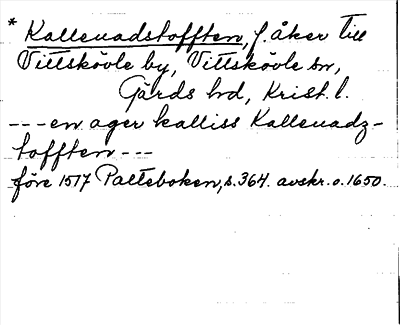 * Kalleuadstofften, f. åker till
Vittskövle by, Vittskövle sn,
Gärds hd, Krist. l.
---en ager kalliss Kalleuadz-
tofften---
före 1517 Palteboken, s. 364. avskr. o. 1650.